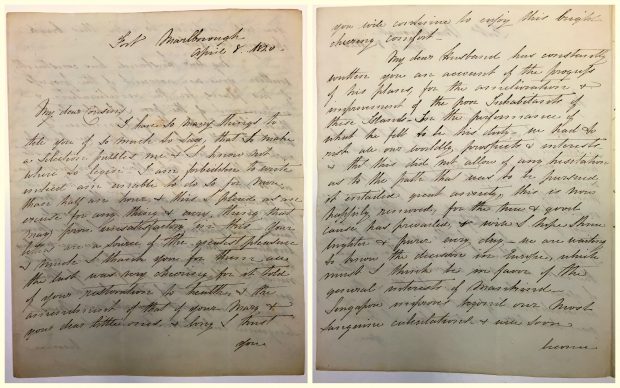 Fort Marlborough
April 8. 1820.
My dear Cousin,
I have so many things to
tell you of so much to say, that to make
a Selection puzzles me & I know not
where to begin. I am forbidden to write
indeed am unable to do so for more
than half an hour & this I plead as an
excuse for any thing & every thing that
may prove unsatisfactory in this. Your
letters are a source of the greatest pleasure
& much I thank you for them all
the last was very cheering for it told
of your restoration to health, & the
amendment of that of your Mary &
your dear little ones & long I trust
you
you will continue to enjoy this bright
cheering comfort.
My dear Husband has constantly
written you an account of the progress
of his plans, for the amelioration &
improvement of the poor Inhabitants of
these Islands. In the performance of
what he felt to be his duty. we had to
risk all our worldly prospects & interests
& tho' this did not allow of any hesitation
as to the path that was to be pursued,
it entailed great anxiety, this is now
happily removed, for the true & good
cause has prevailed, & will I hope shine
brighter & purer every day. we are waiting
to know the decision in Europe, which
must I think be in favor of the
general interests of Mankind.
Singapore improves beyond our most
sanguine calculations & will soon
become